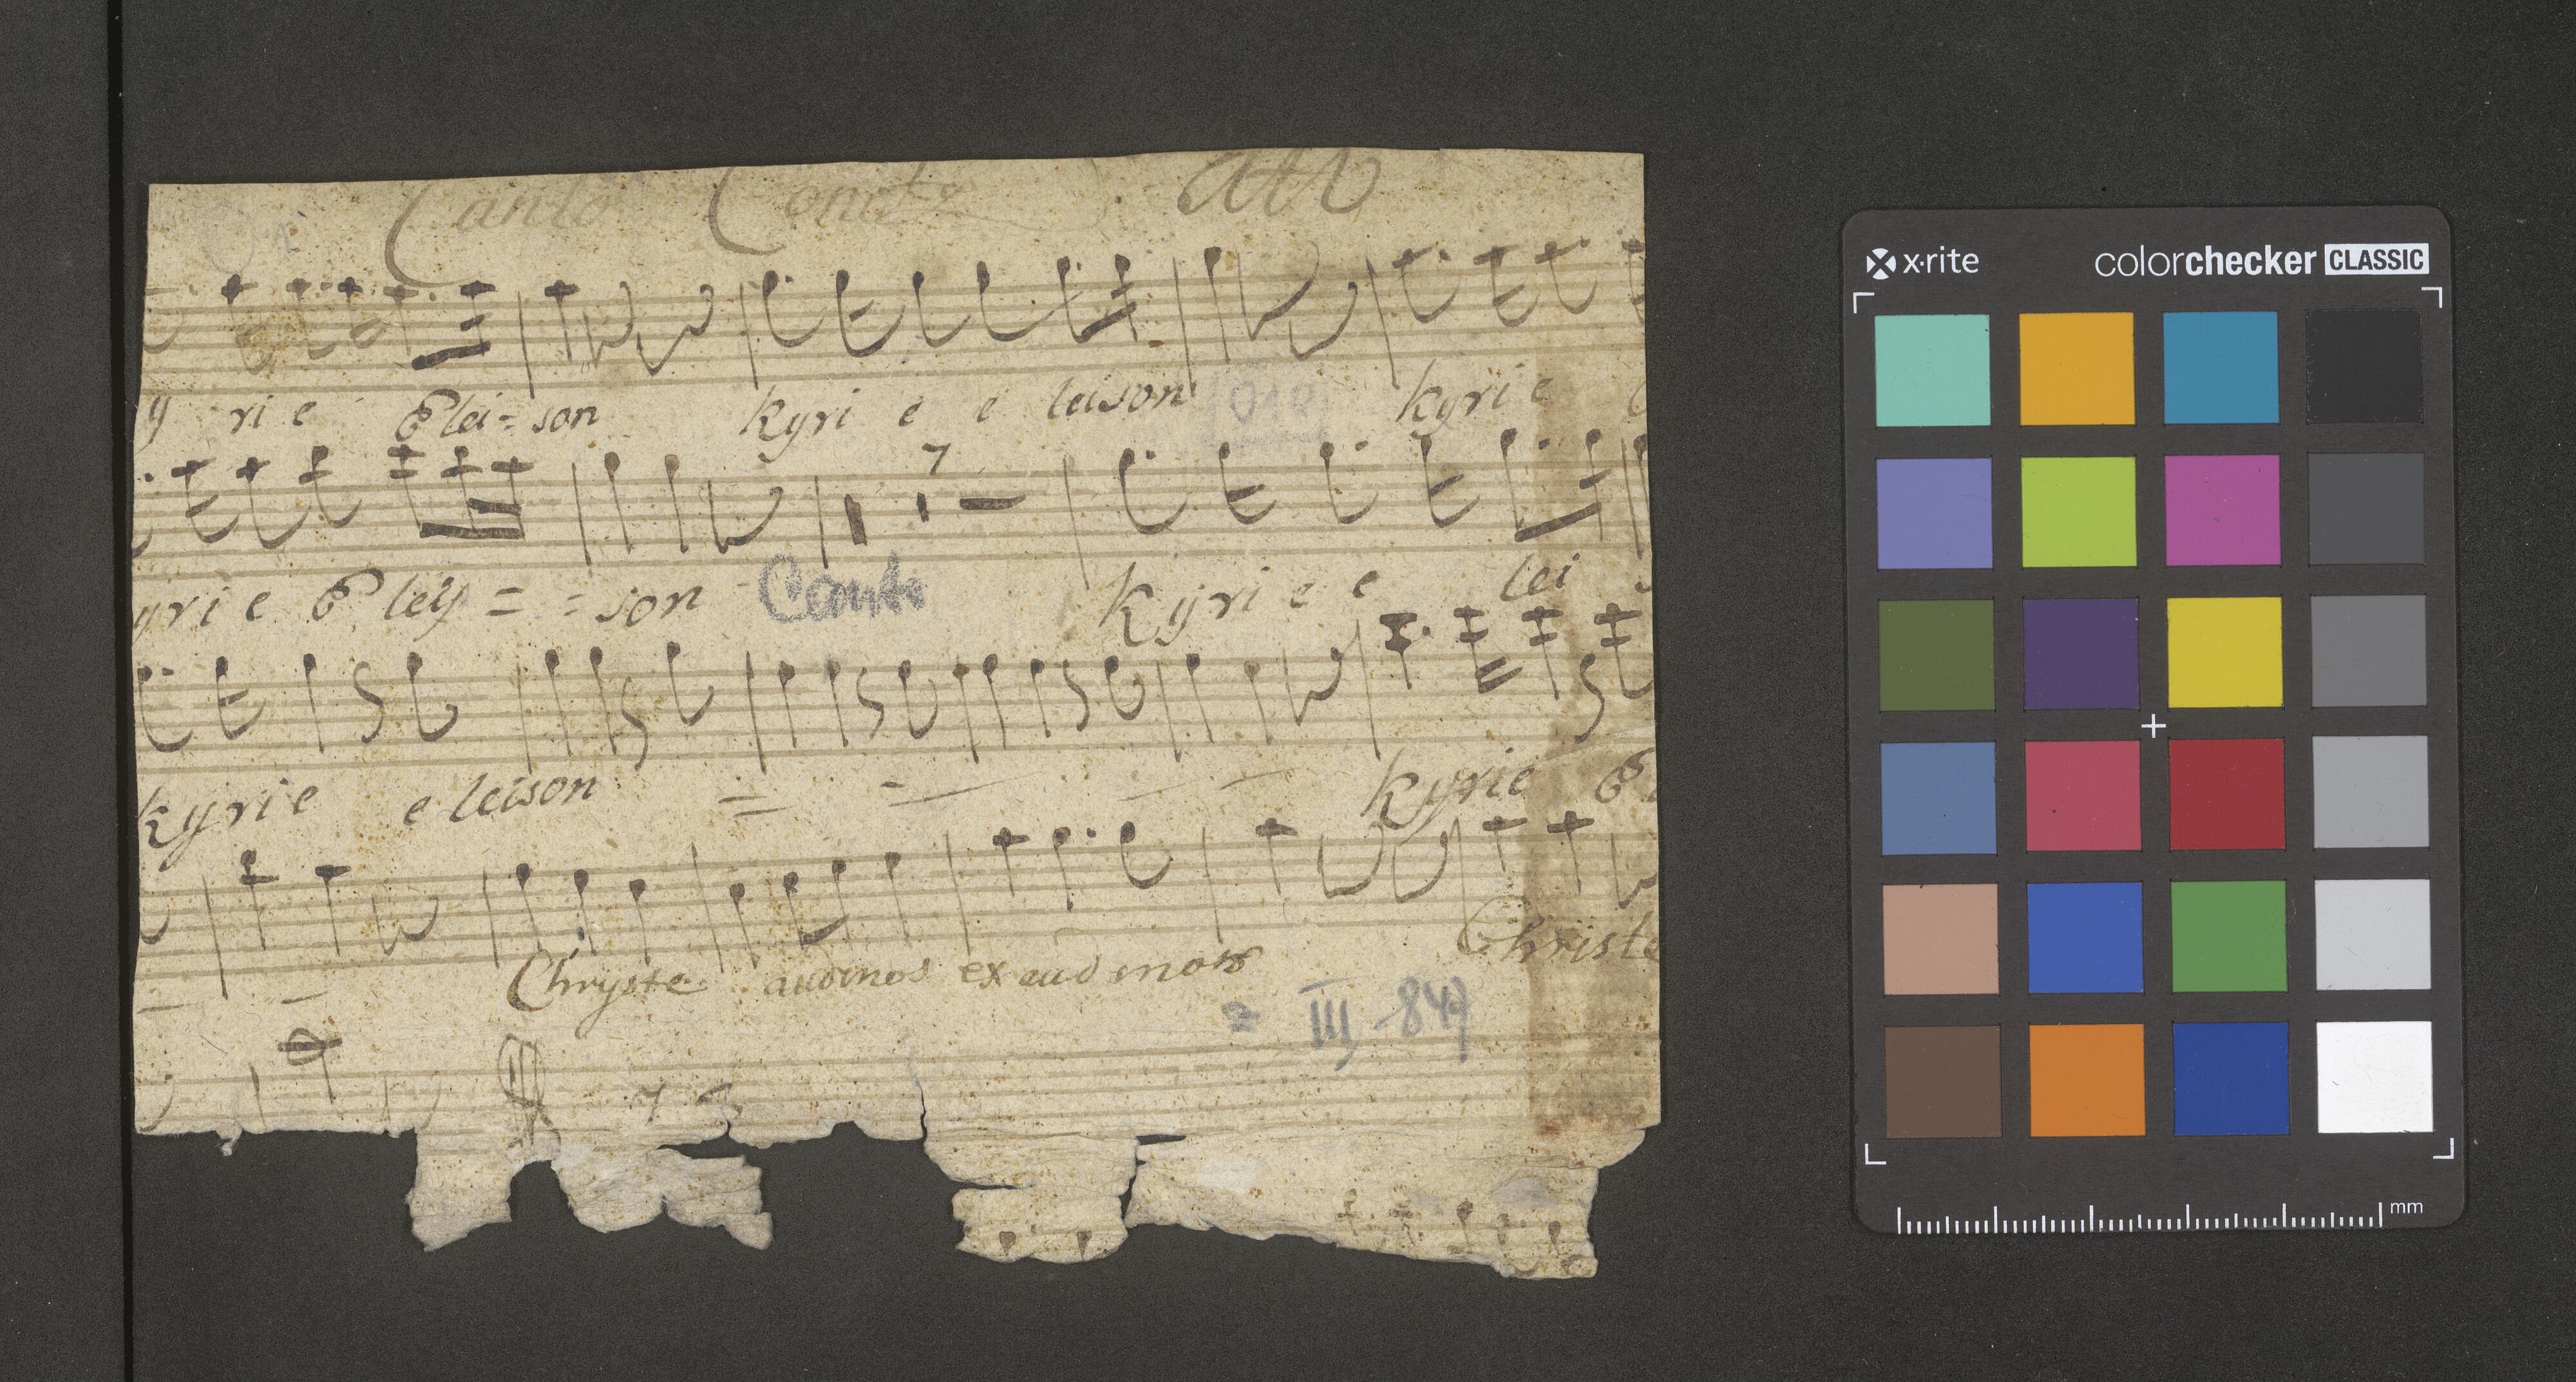 Canto Conc.to All
y ri e Elei= son Kyri e e leison kyri e
7
yri e Eley = = son Canto Kyri e e lei
kyrie eleison = kyrie E
Chryste audinos exaudinos Christe
= III, 847
x·rite colorchecker CLASSIC
mm